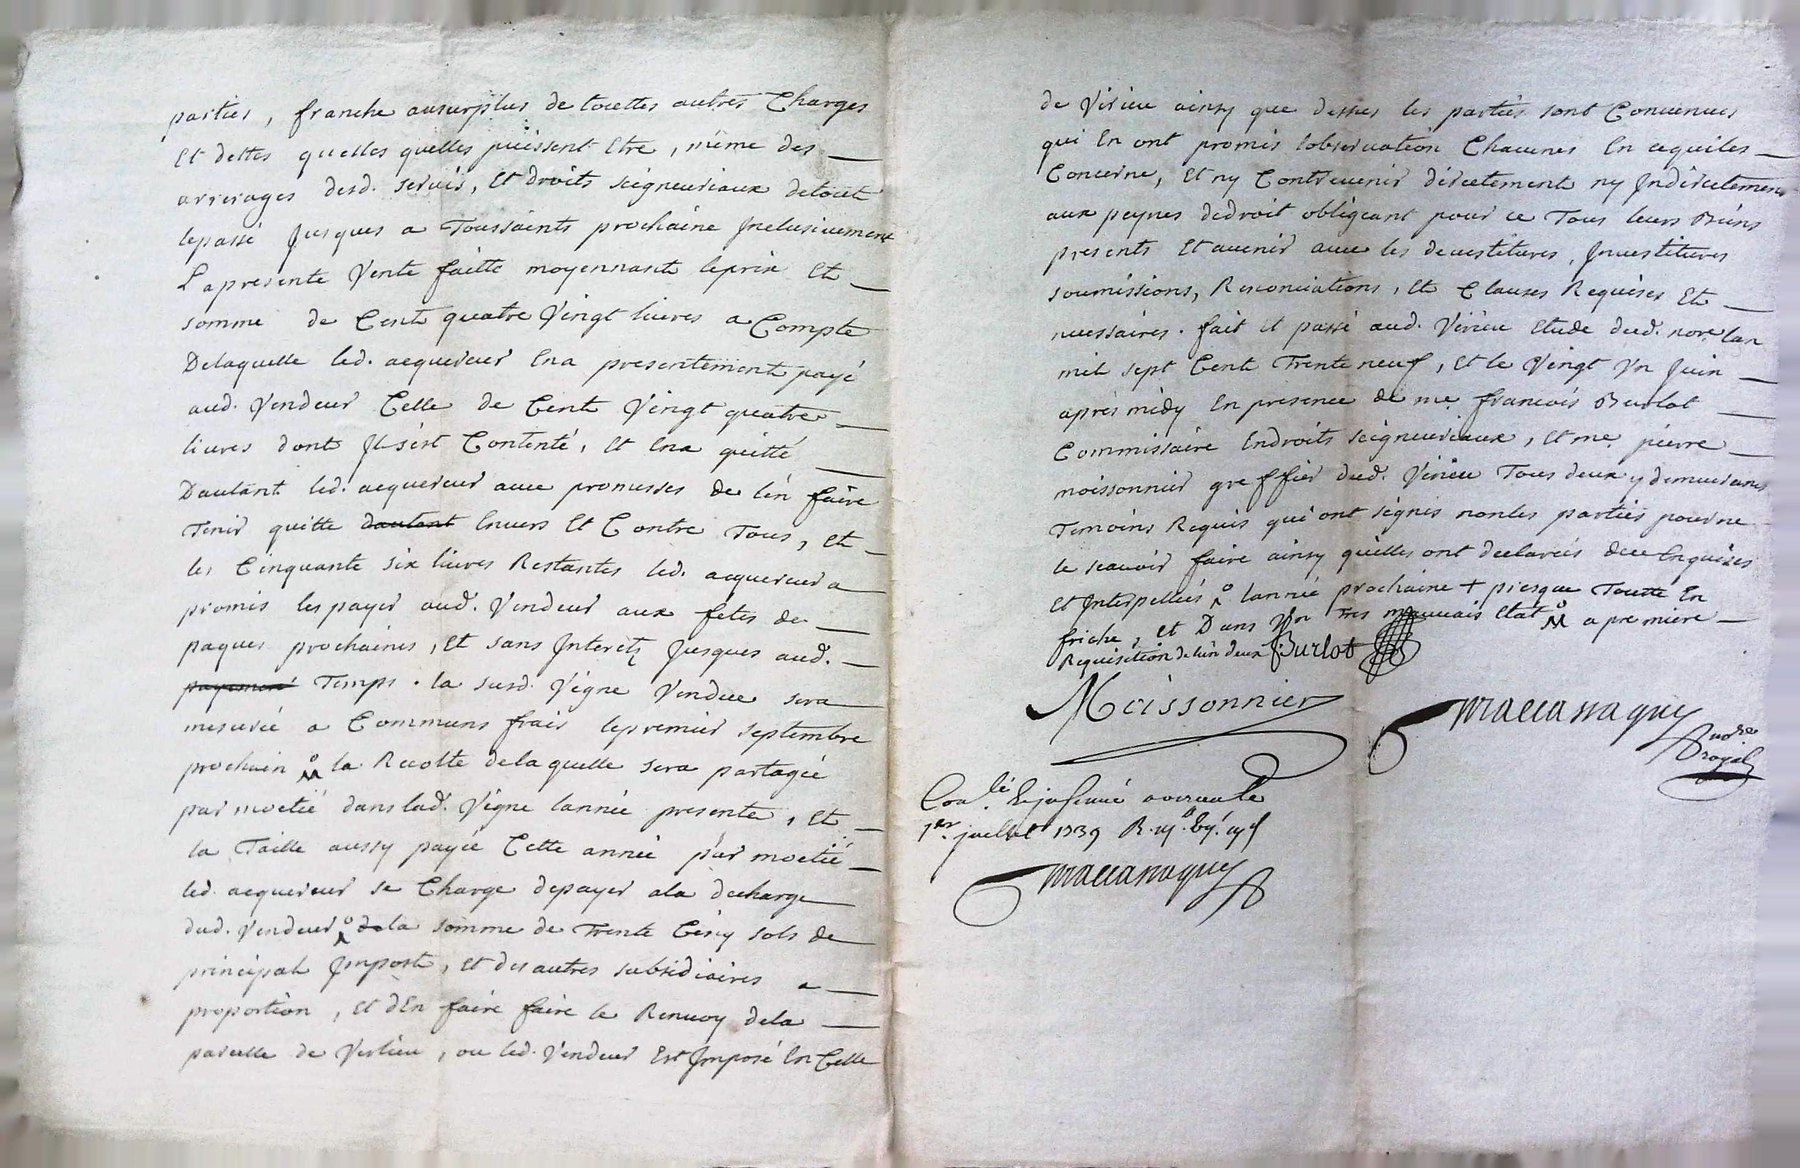 parties, franche ausurplus de touttes autres Charges
Et dettes quelles quelles puissent Etre, même des
arrerages desd. servis, Et droits seigneuriaux detout
lepassé Jusques a Toussaints prochaine Inclusivement
La presente Vente faitte moyennant leprix Et
somme de Cent quatre Vingt livres a Compte
Delaquelle led. acquereur Ena presentement payé
aud. Vendeur Celle de Cent Vingt quatre
livres dont Il sést Contenté, Et Ena quitté
Dautant led. acquereur avec promesses de lén faire
Tenir quitte dautant Envers Et Contre Tous, Et
les Cinquante six livres Restantes led. acquereur a
promis les payer aud. Vendeur aux fetes de
paques prochaines, Et sans Interetz Jusques aud.
payement Temps. la susd. Vigne Vendue sera
mesurée a Communs frais lepremier septembre
prochain la Recolte delaquelle sera partagée
par moetié dans lad. Vigne lannée presente, Et
la Taille aussy payée Cette année par moetié
led. acquereur se Charge depayer ala decharge
dud. Vendeur dela somme de Trente Cinq sols de
principal Impost, Et des autres subsidiaires a
proportion, Et dEn faire faire le Renvoy dela
parcelle de Verlieu, ou led. Vendeur Est Imposé En Celle
de Virieu ainsy que dessus les parties sont Convenues
qui En ont promis lobservation Chacunes En cequiles
Concerne, Et ny Contrevenir directement ny Indirectement
aux peynes dedroit obligeant pour ce Tous leurs Biens
presents Et avenir avec les devestitures, Investitures
soumissions, Renonciations, Et Clauses Requises Et
necessaires. fait et passé aud. Virieu Etude dud. nore. lan
mil sept Cent Trente neuf, Et le Vingt Vn Juin
aprés midy En presence de me. francois Burlat
Commissaire Endroits seigneuriaux, Et me. pierre
moissonnier greffier dud. Virieu Tous deux y demeurants
Temoins Requis qui ont signés nonles parties pourne
le scavoir faire ainsy quelles ont declarées deu Enquises
Et Interpellées lannée prochaine + presque Toutte En
friche, Et Dans Vn Tres mauvais Etat a premiere
Requisition de lún deux Burlot
Moissonnier
maccanaquy
nore
royal
1er. juillet 1739
maccanaquy